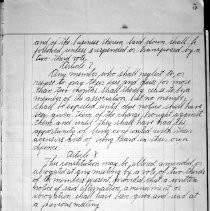 and of the business therein laid down shall be
followed unless suspended or transgressed by a
two third vote
Article
Any member who shall neglect to or
refuse to pay their dues and fines for more
than two months shall thereby cease to be a
member of the association but no member
shall be expelled until due notice shall have
been given them of the charge brought against
them and until they shall have had the
opportunity of being confronted with their
accusers and of being heard in their own
defence
Article X
This constitution may be altered amended or
abrogated at any meeting by a vote of two thirds
of the members present provided that a written
notice of said alteration, amendment or
abolition shall have been given and read at
a previous meeting